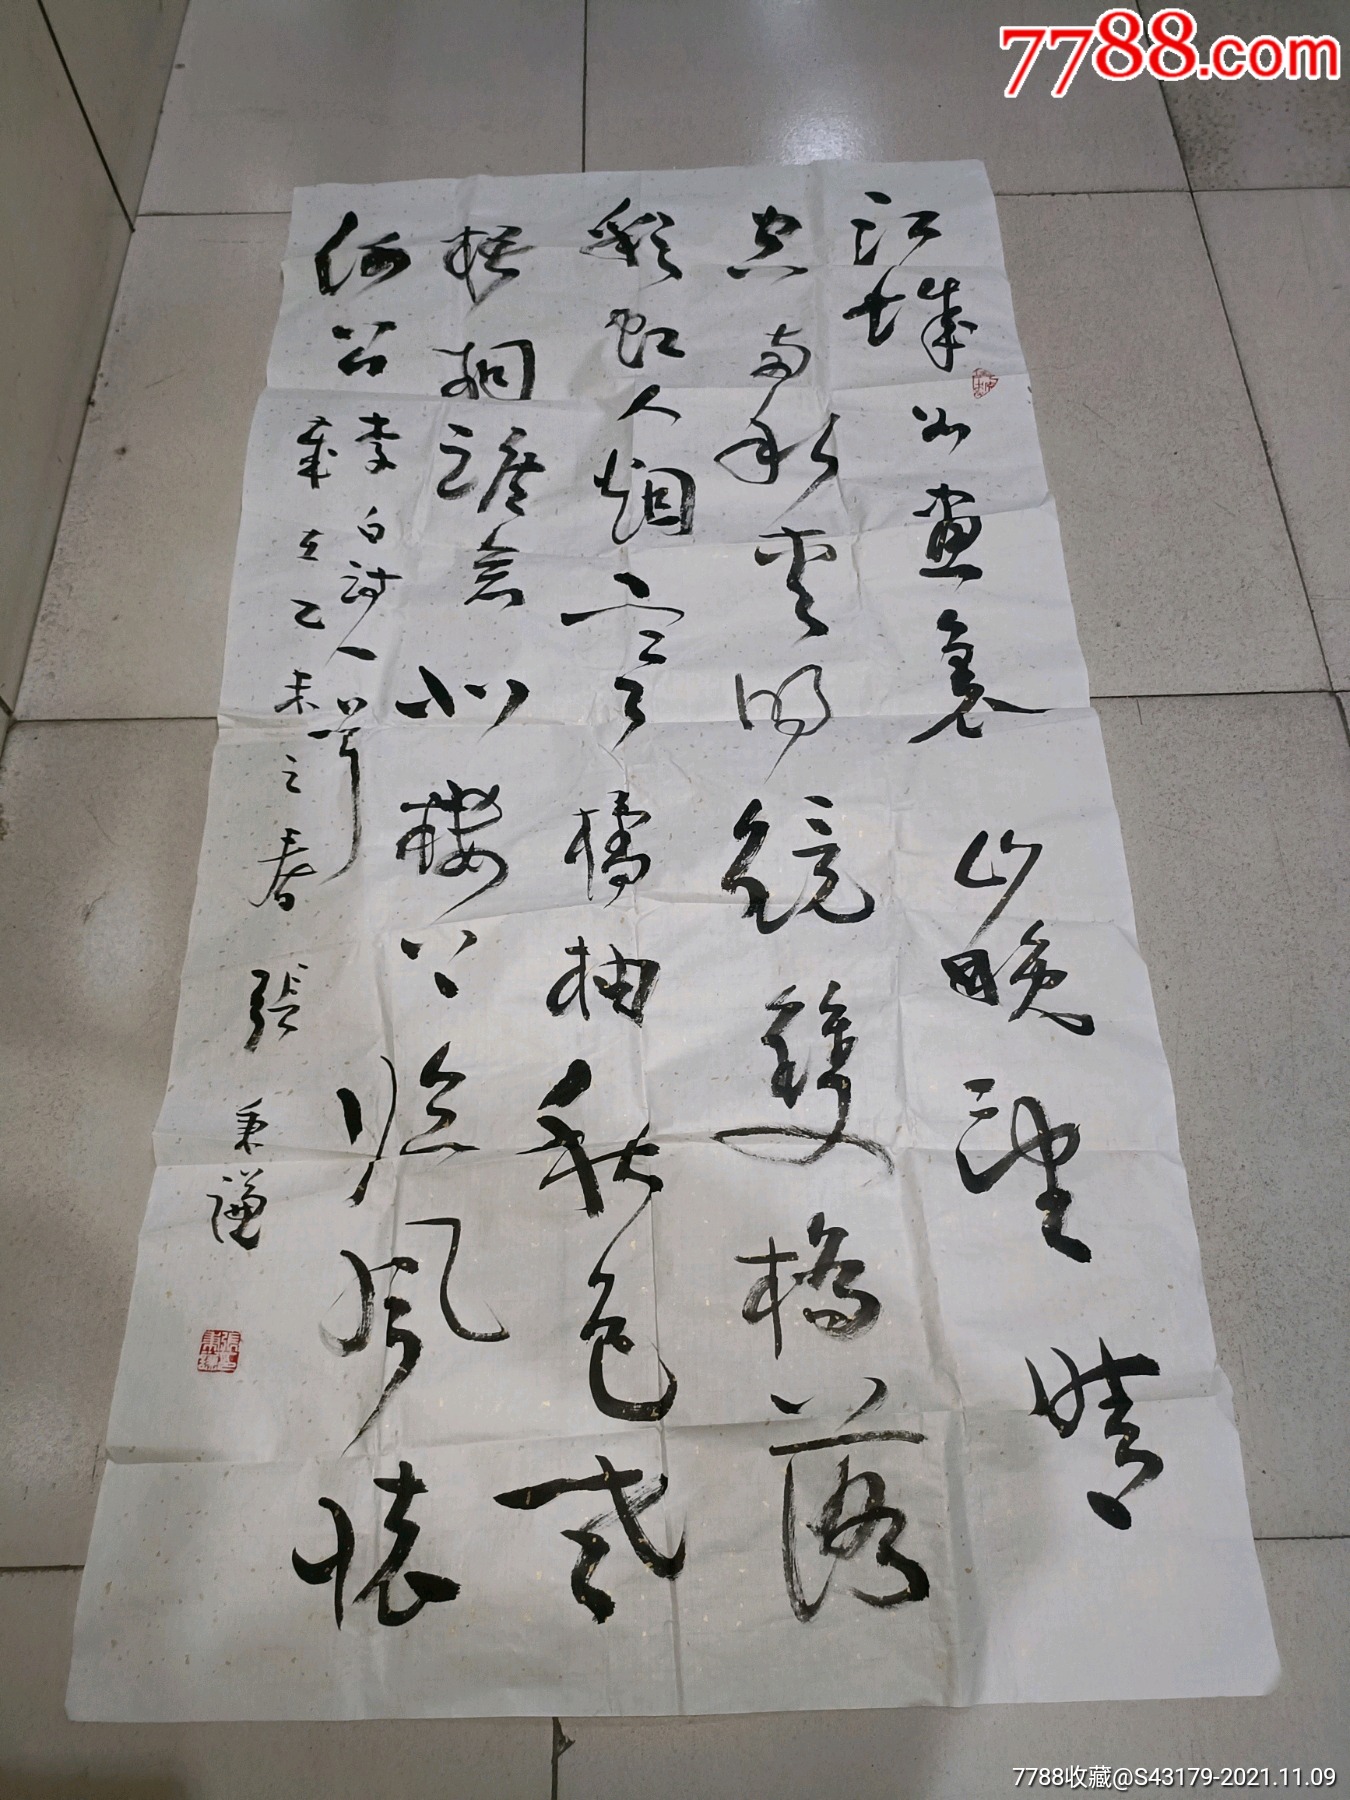 7788.com
江城如画裏山晚望晴
空两明鏡雙橋落
彩虹人烟寒橘柚秋色
梧桐誰念北楼上临风懷
公李白詩一首
歲在乙未之春張秉謙
7788收藏@S43179-2021.11.09